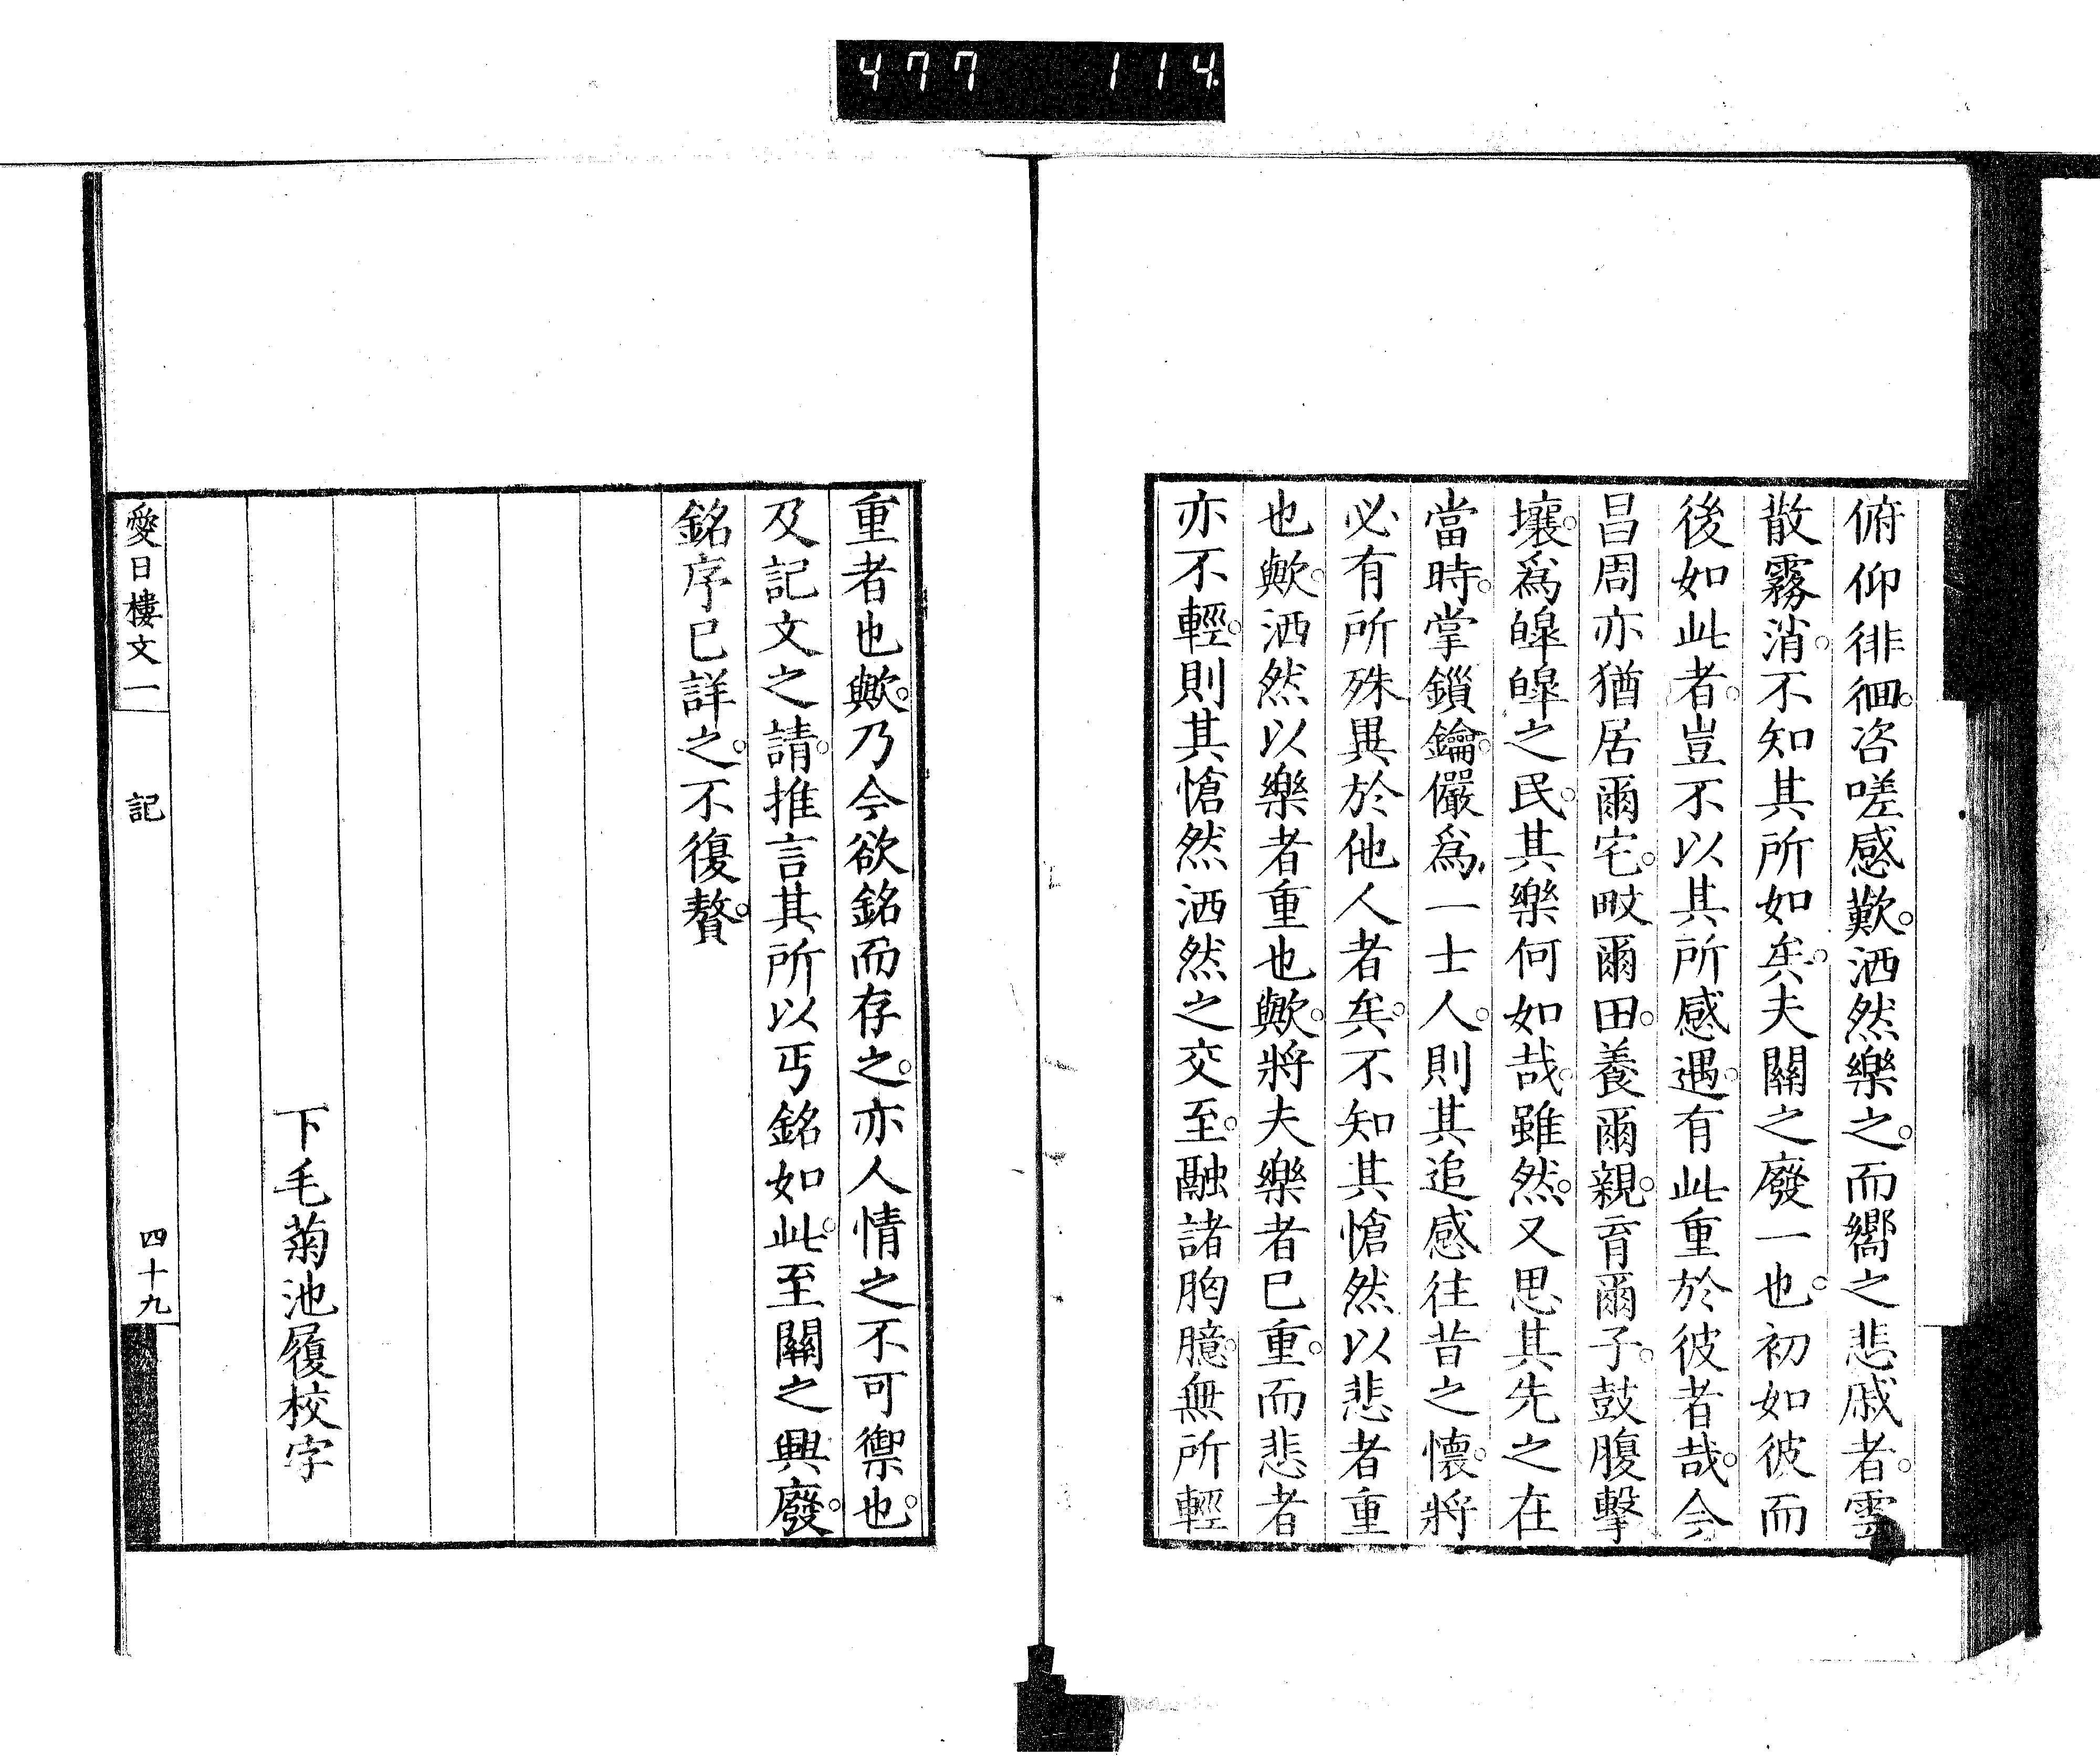 477 114
俯仰徘徊。咨嗟感歎。洒然樂之。而嚮之悲戚者。雲
散霧消。不知其所如矣。夫關之廢一也。初如彼而
後如此者。豈不以其所感遇。有此重於彼者哉。今
昌周亦猶居爾宅。畋爾田。養爾親。育爾子。鼓腹擊
壤。爲皞皞之民。其樂何如哉。雖然。又思其先之在
當時。掌鎖鑰。儼爲一士人。則其追感往昔之懷。將
必有所殊異於他人者矣。不知其愴然以悲者重
也歟。洒然以樂者重也歟。將夫樂者已重。而悲者
亦不輕。則其愴然洒然之交至。融諸胸臆。無所輕
重者也歟。乃今欲銘而存之。亦人情之不可禦也。
及記文之請。推言其所以丐銘如此。至關之興廢。
銘序已詳之。不復贅。
下毛菊池履校字
愛日樓文一 記 四十九